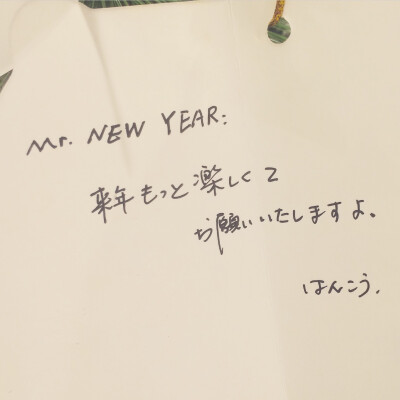 Mr. NEW YEAR:
来年もっと楽しくて
お願いいたしますよ。
はんこう.